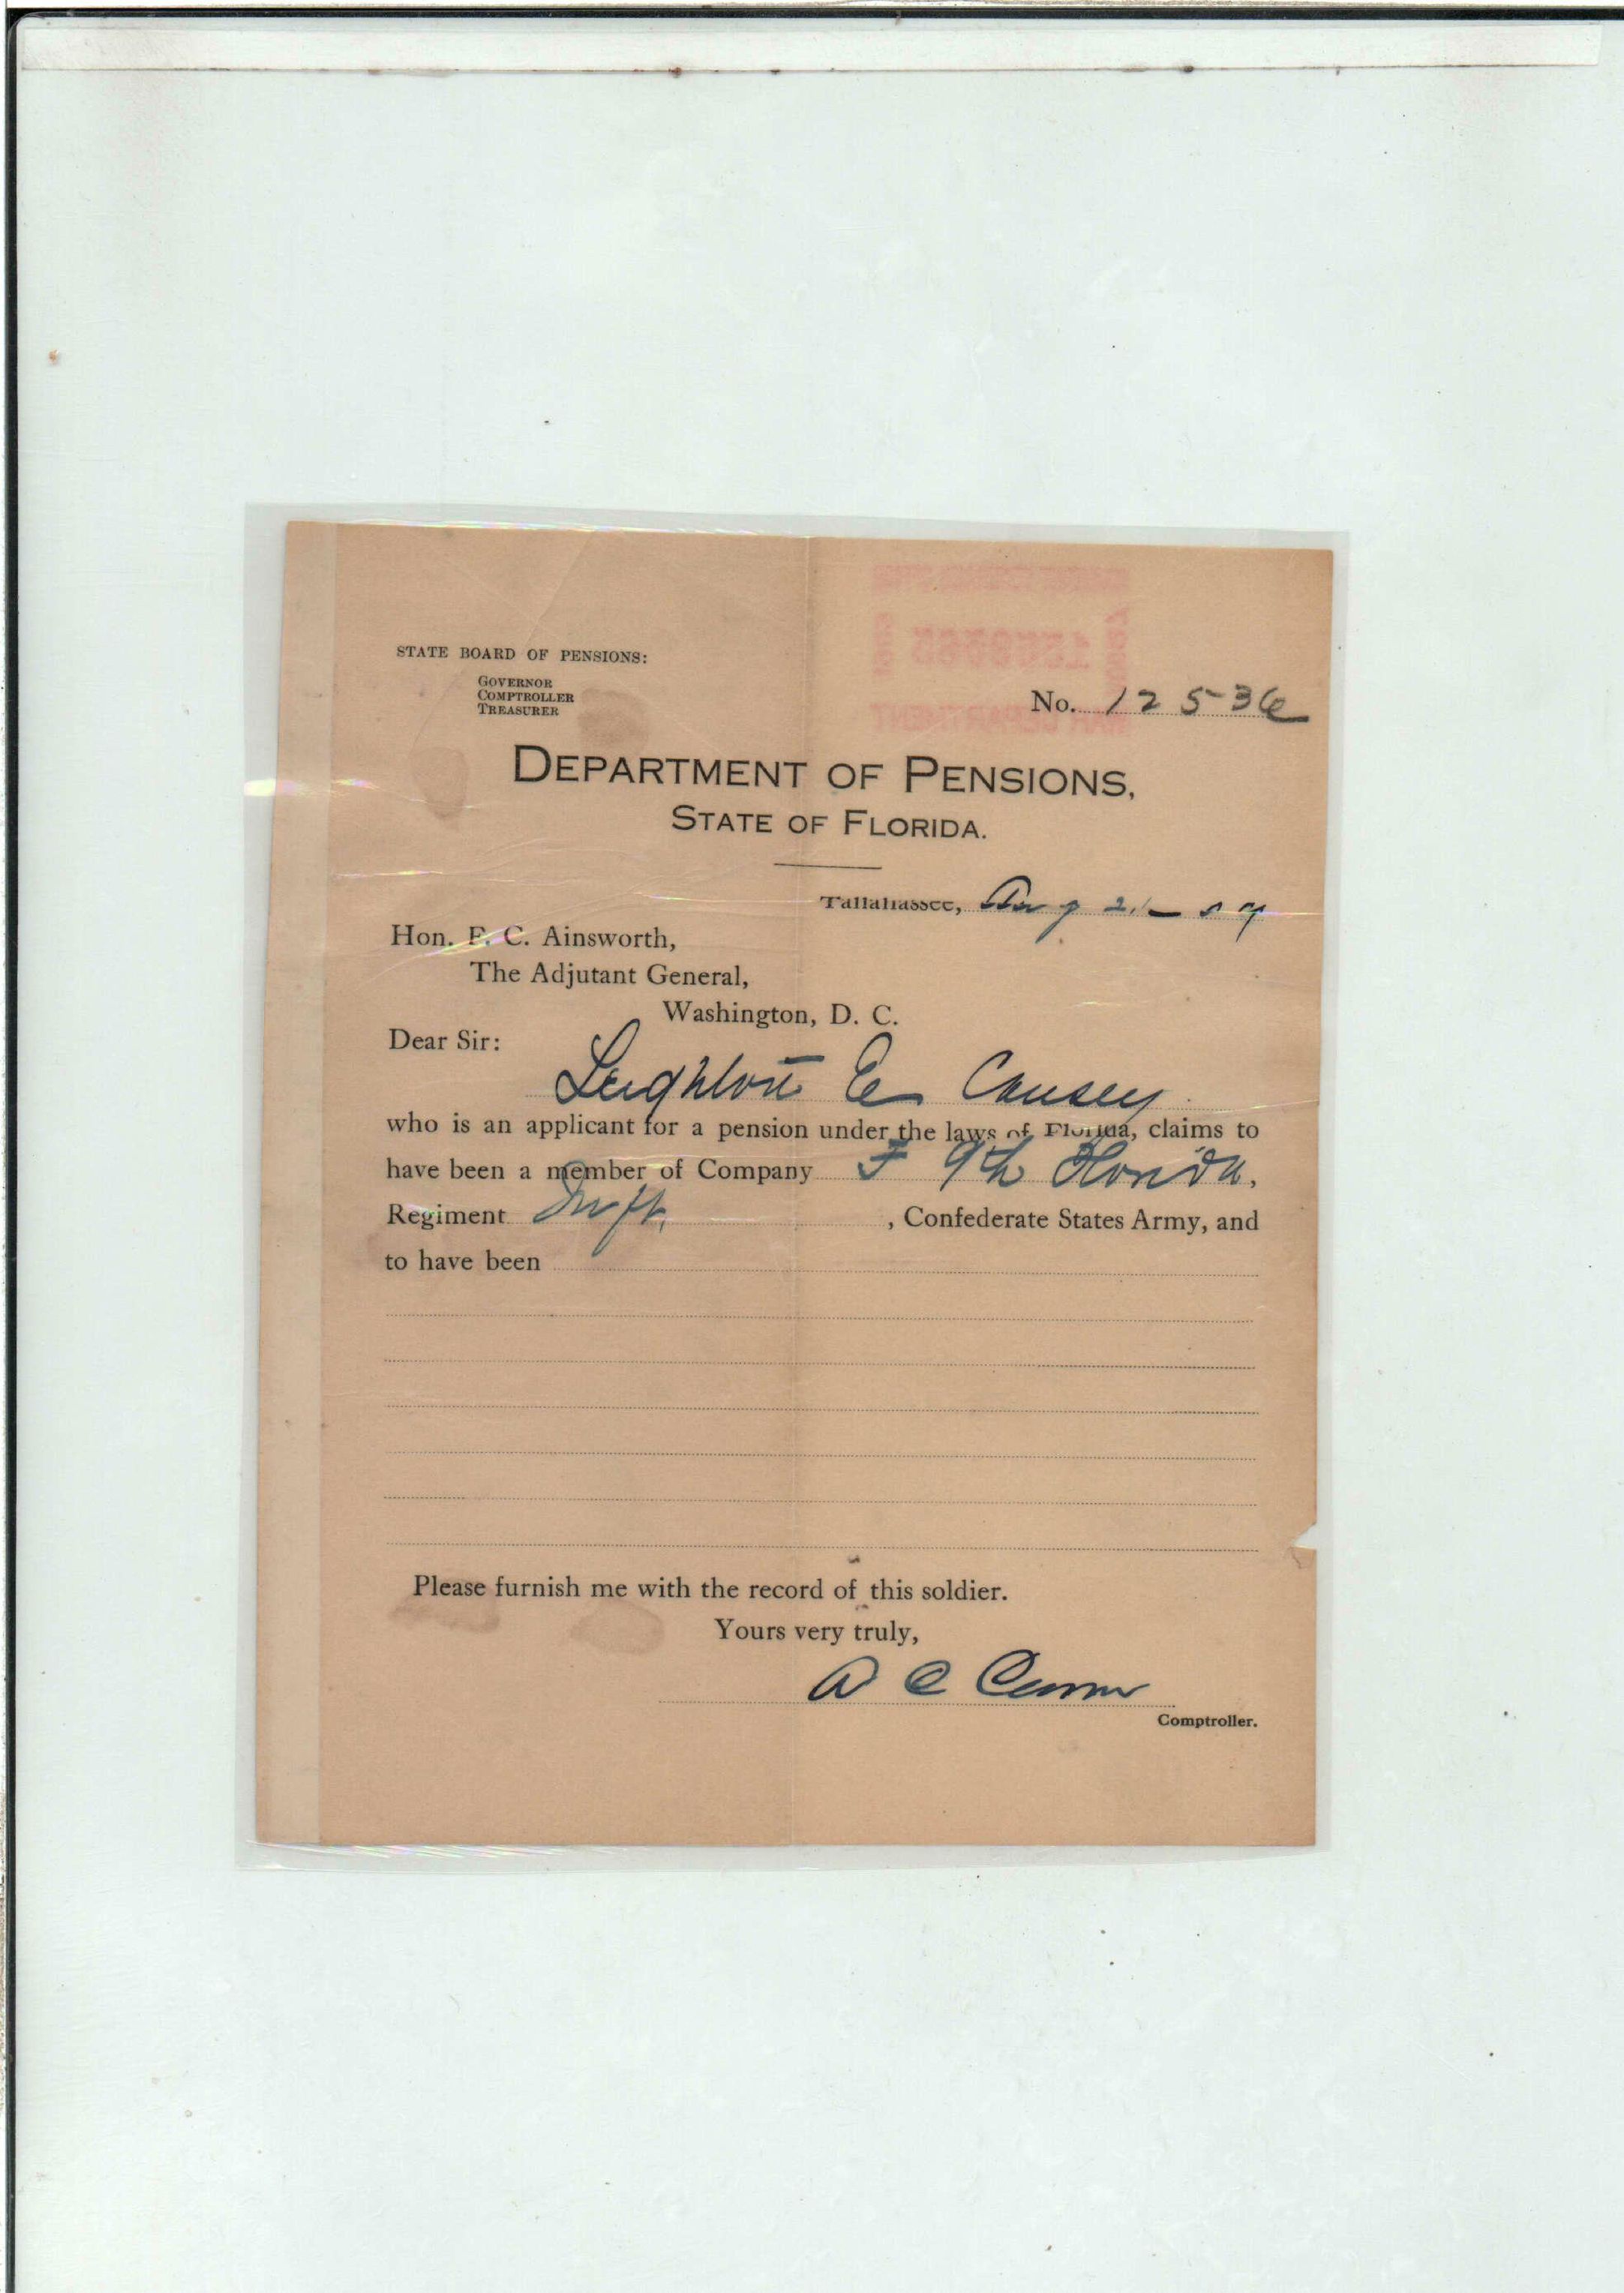 STATE BOARD OF PENSIONS:
GOVERNOR
COMPTROLLER
TREASURER
No. 12536
DEPARTMENT OF PENSIONS,
STATE OF FLORIDA.
Tallahassee, Aug 21- 09
Hon. F. C. Ainsworth,
The Adjutant General,
Washington, D. C.
Dear Sir:
Leighton E Causey
who is an applicant for a pension under the laws of Florida, claims to
have been a member of Company F 9th Florida,
Regiment Inft. , Confederate States Army, and
to have been
Please furnish me with the record of this soldier.
Yours very truly,
A C Croom
Comptroller.